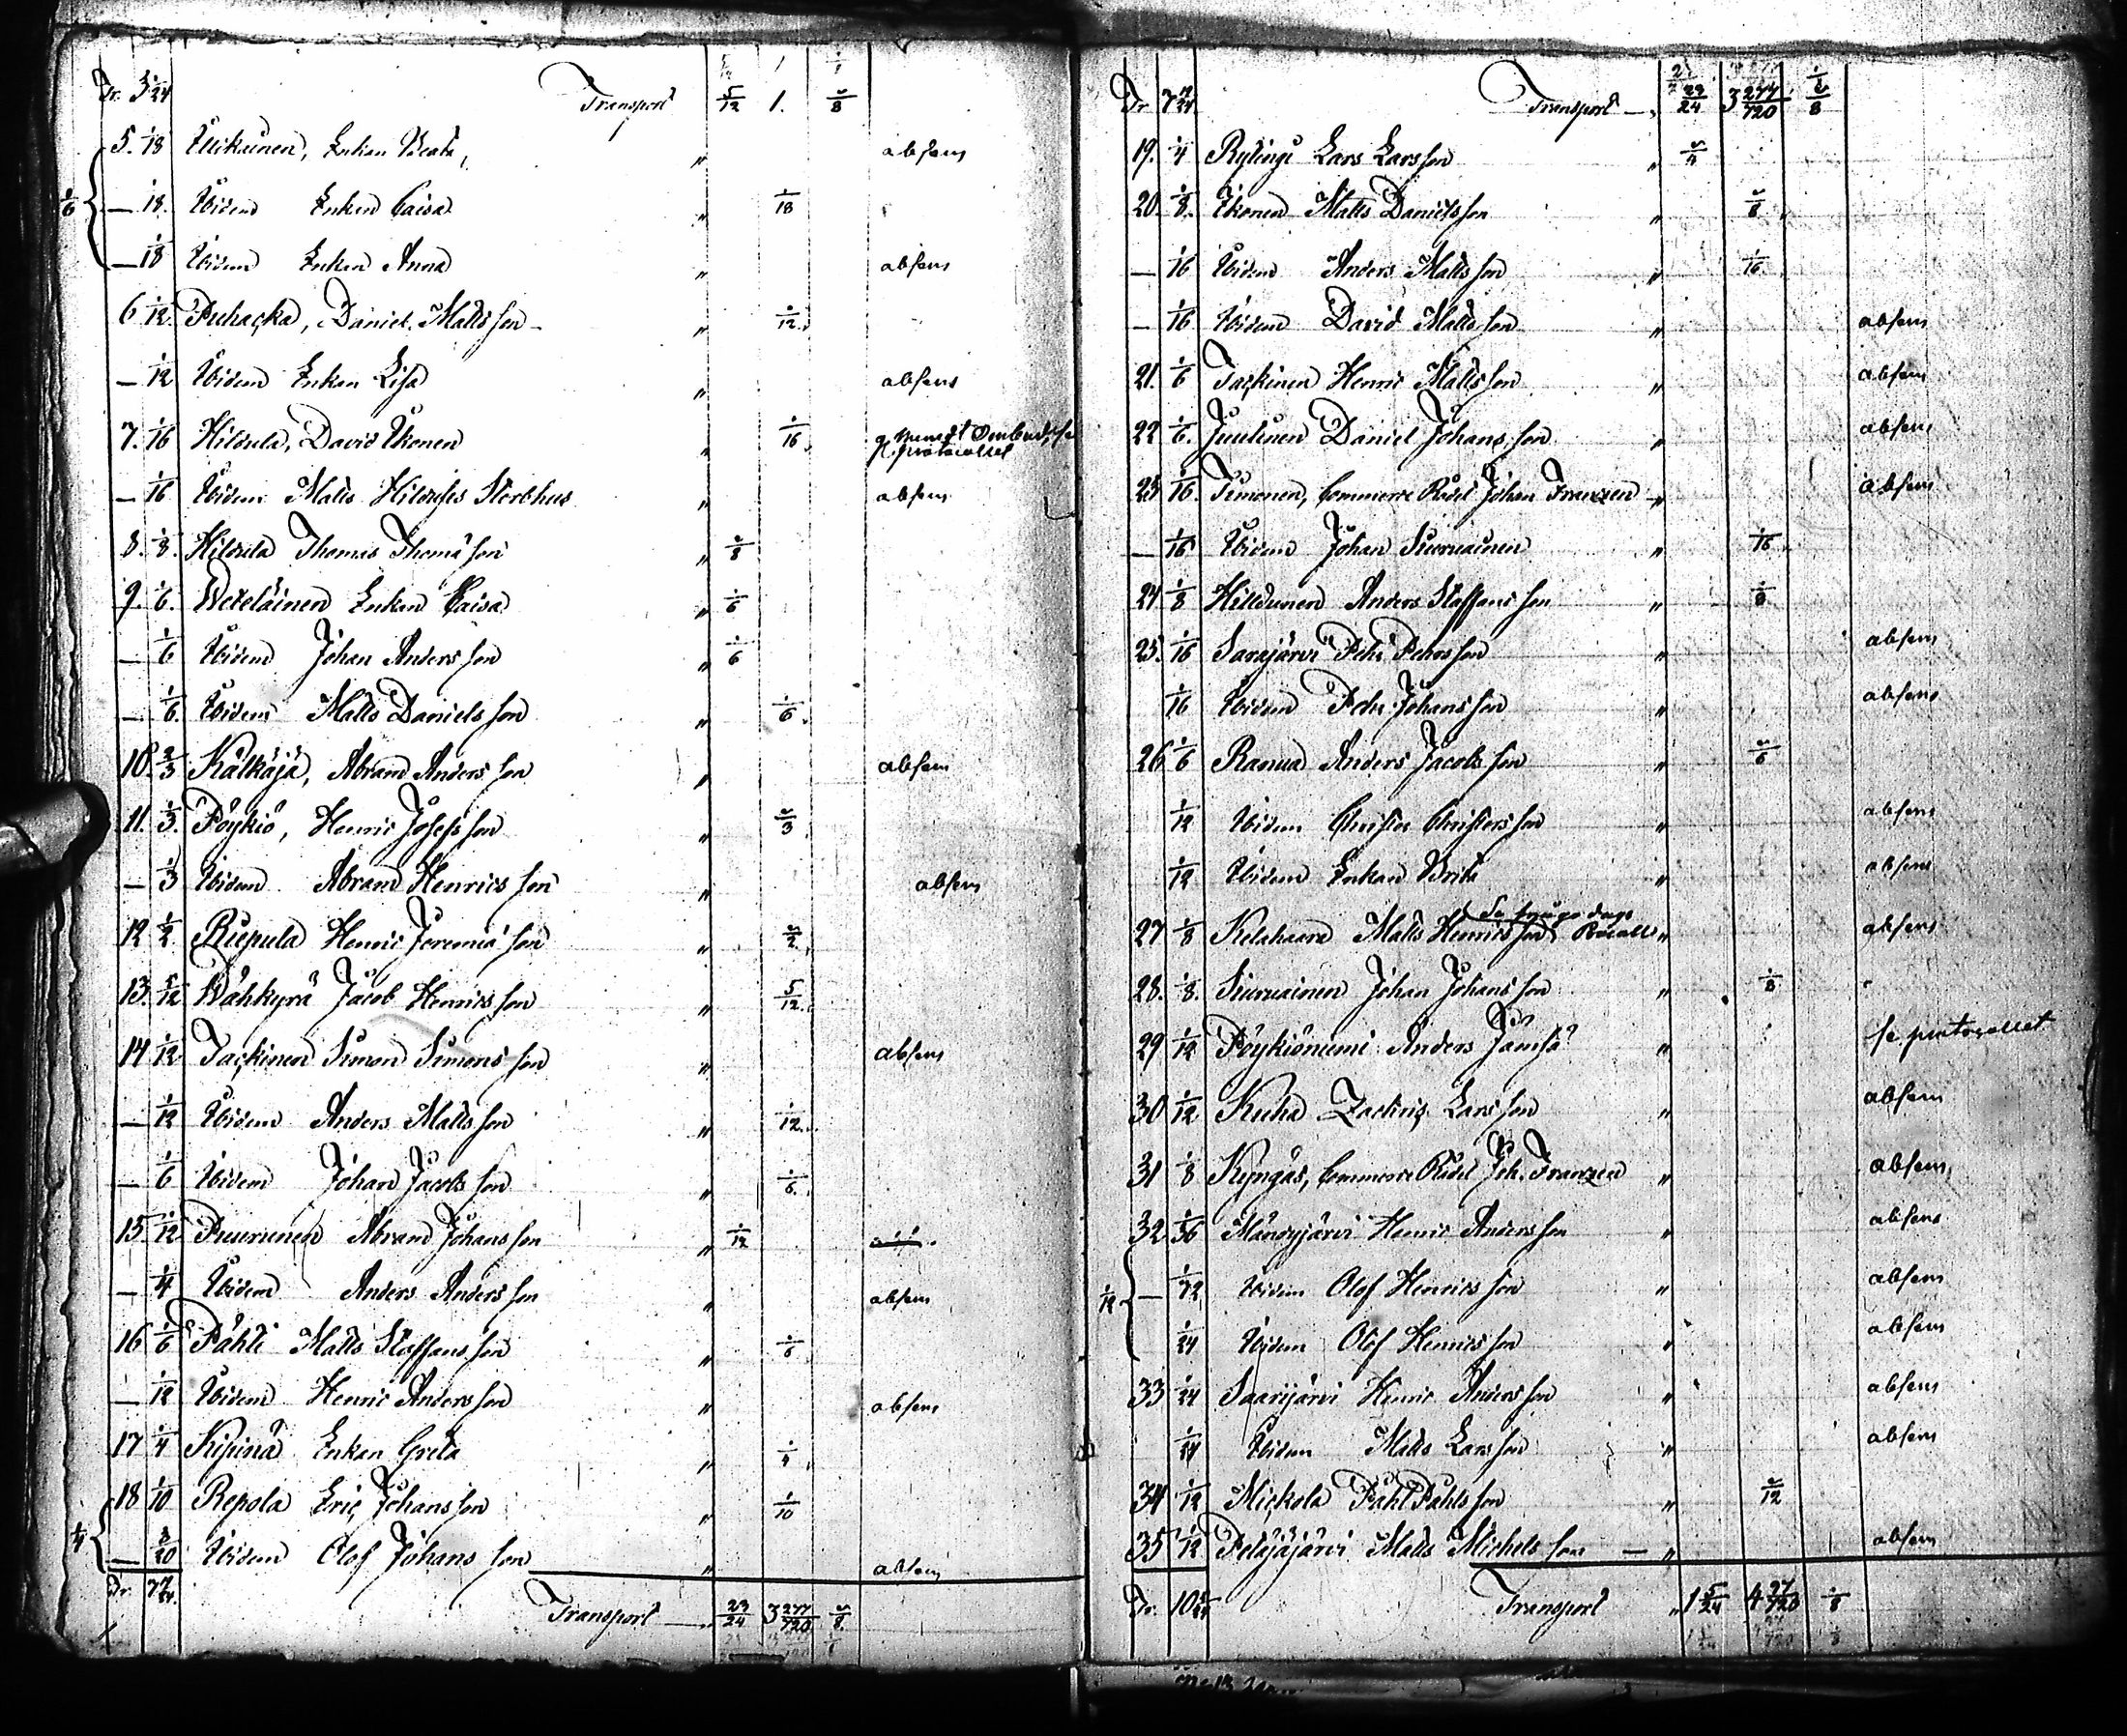 Tr. 3 1/24 Transport 5/12 1. 1/8
5. 1/18 Ulikainen, Enkan Beata, " absens
— 1/18 Ibidem Enkan Caisa " 1/18
1/6 — 1/18 Ibidem Enkan Anna " absens
6 1/12 Puhacka, Daniel Matts son " 1/12
— 1/12 Ibidem Enkan Lisa " absens
7. 1/16 Hildula, David Ikonen " 1/16 protocollet
— 1/16 Ibidem Matts Sterbhus " absens
8. 1/8 Hildula Thomas Thomæ son " 1/8
9. 1/6 Weteläinen Enkan Caisa " 1/6
— 1/6 Ibidem Johan Anders son " 1/6
— 1/6 Ibidem Matts Daniels son " 1/6
10. 2/3 Kälkäjä, Abram Anders son " absens
11. 1/3 Pöykiö, Henric Josefs son " 1/3
— 1/3 Ibidem Abram Henrics son " absens
12 1/2 Ruepula Henric Jeremiæ son " 1/2
13. 5/12 Wähkyrä Jacob Henrics son " 5/12
14 1/12 Tackinen Simon Simons son " absens
— 1/12 Ibidem Anders Matts son " 1/12
— 1/6 Ibidem Johan Jacobs son " 1/6
15. 1/12 Puurunen Abram Johans son " 1/12
— 1/4 Ibidem Anders Anders son " absens
16 1/6 Pähti Matts Staffans son " 1/6
— 1/12 Ibidem Henric Anders son " absens
17 1/4 Kipinä Enkan Greta " 1/4
18 1/10 Repola Eric Johans son " 1/10
1/4 — 3/20 Ibidem Olof Johans son " absens
Tr. 7 7/24 Transport 23/24 3 277/720 1/8
Tr 7 7/24 Transport — " 23/24 3 277/720 1/8
19. 1/4 Rytingi Lars Lars son " 1/4
20. 1/8 Ikonen Matts Daniels son " 1/8
— 1/16 Ibidem Anders Matts son " 1/16
— 1/16 Ibidem David Matts son " absens
21. 1/6 Tackinen Henric Matts son " absens
22 1/6 Juutinen Daniel Johans son " absens
23 1/16 Simonen, Commerce Rådet Johan Franzen " absens
— 1/16 Ibidem Johan Siuruainen " 1/16
24 1/8 Hilldunen Anders Staffans son " 1/8
25. 1/16 Sarajärvi Pehr Pehrs son " absens
1/16 Ibidem Pehr Johans son " absens
26 1/6 Ranua Anders Jacobs son " 1/6
1/12 Ibidem Christer Christers son " absens
1/12 Ibidem Enkan Brita " absens
27 1/8 Kelahaara Matts Henrics son " absens
28. 1/8 Siuruainen Johan Johans son " 1/8
29 1/12 Pöykiöniemi Anders Jämsä " se protocollet
30 1/12 Kuha Zachris Lars son " absens
31 1/8 Kyngäs, Commerce Rådet Joh. Franzen " absens
32 1/36 Mändyjärvi Henric Anders son " absens
1/12 — 1/72 Ibidem Olof Henrics son " absens
1/24 Ibidem Olof Henrics son " absens
33 1/24 Saarijärvi Henric Anders son " absens
1/24 Ibidem Matts Lars son " absens
34 1/12 Mickola Påhl Påhls son " 1/12
35 1/12 Petäjäjärvi Matts Michels son — " absens
Tr. 10 Transport " 1 5/24 4 97/720 1/8